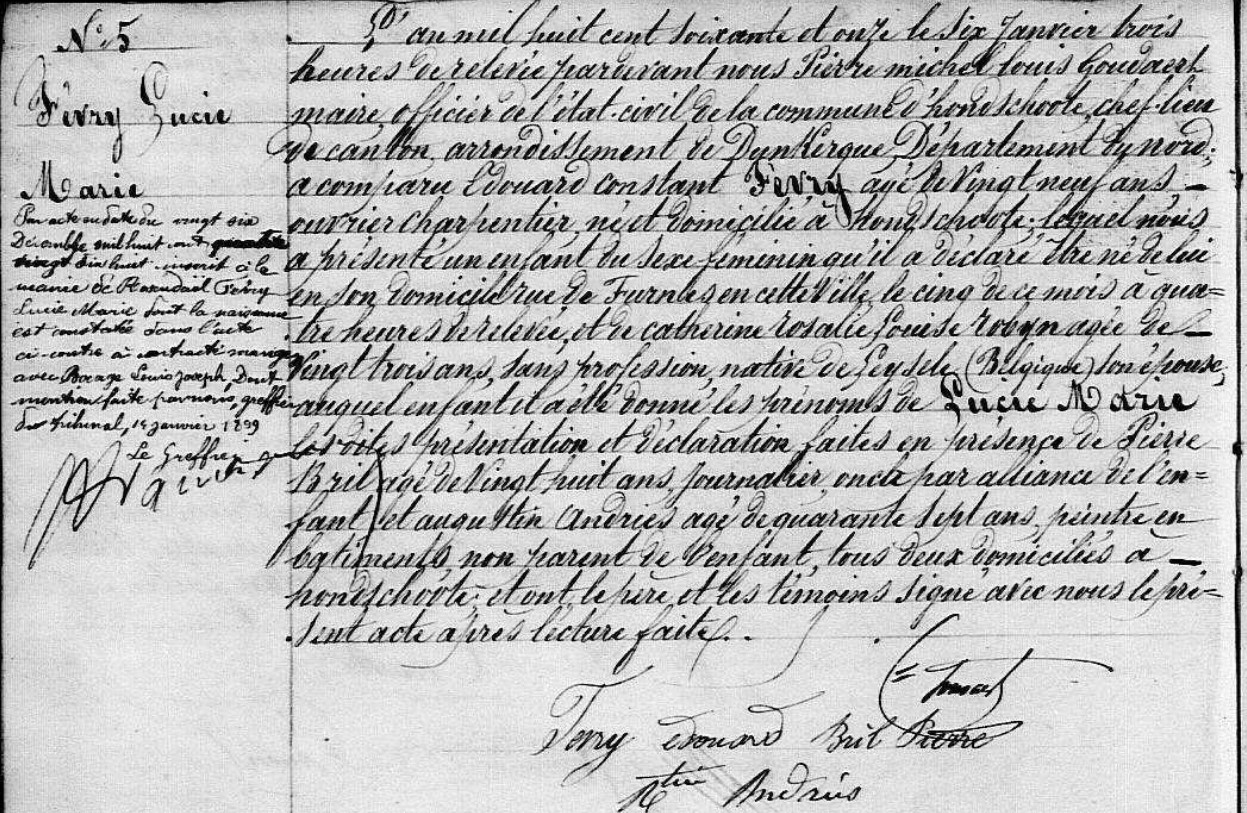 N° 5
Févry Lucie
Marie
Par acte en date du vingt six
Décembre mil huit cent quatre
vingt dix huit inscrit à la
mairie de Rosendael Févry
Lucie Marie dont la naissance
est constatée dans l'acte
ci-contre à contracté mariage
avec Louis Joseph, Dont
mention faite par nous, greffier
du tribunal, janvier 1899
Le Greffier
L'an mil huit cent soixante et onze le six Janvier trois
heures de relevée pardevant nous Pierre michel louis Goudaert
maire, officier de l'état-civil de la commune d'hondschoote, chef-lieu
de canton, arrondissement de Dunkerque, Département du nord;
a comparu Edouard constant Févry agé de Vingt neuf ans —
ouvrier charpentier, né et domicilié à hondschoote; lequel nous
a présenté un enfant du sexe féminin qu'il a déclaré être né de lui
en son domicile rue de Furnes en cette Ville, le cinq de ce mois à qua=
tre heures de relevée, et de catherine rosalie Louise robyn agée de —
Vingt trois ans, sans profession, native de Leysele (Belgique) son épouse;
auquel enfant il a été donné les prénoms de Lucie Marie
les dites présentation et déclaration faites en présence de Pierre
Bril agé de Vingt huit ans, Journalier, oncle par alliance de l'en=
fant, et augustin Andriès agé de quarante sept ans, peintre en
batiments, non parent de l'enfant, tous deux domiciliés à —
hondschoote; et ont le père et les témoins signé avec nous le pré=
sent acte après lecture faite.
Fevry edouard Bril Pierre
Andriès